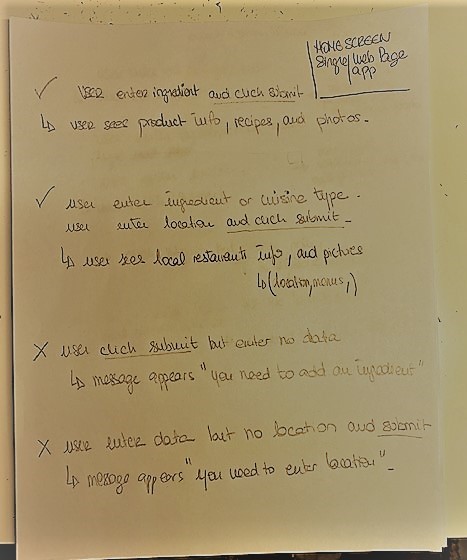 HOME SCREEN
Single Web Page
app
✓ User enter ingredient and click submit
↳ user sees product info, recipes, and photos.
✓ user enter ingredient or cuisine type.
user enter location and click submit_
↳ user sees local restaurants info, and pictures
↳ (location, menus,)
X user click submit but enter no data
↳ message appears "you need to add an ingredient"
X user enter data but no location and submit
↳ message appears "you need to enter location"_